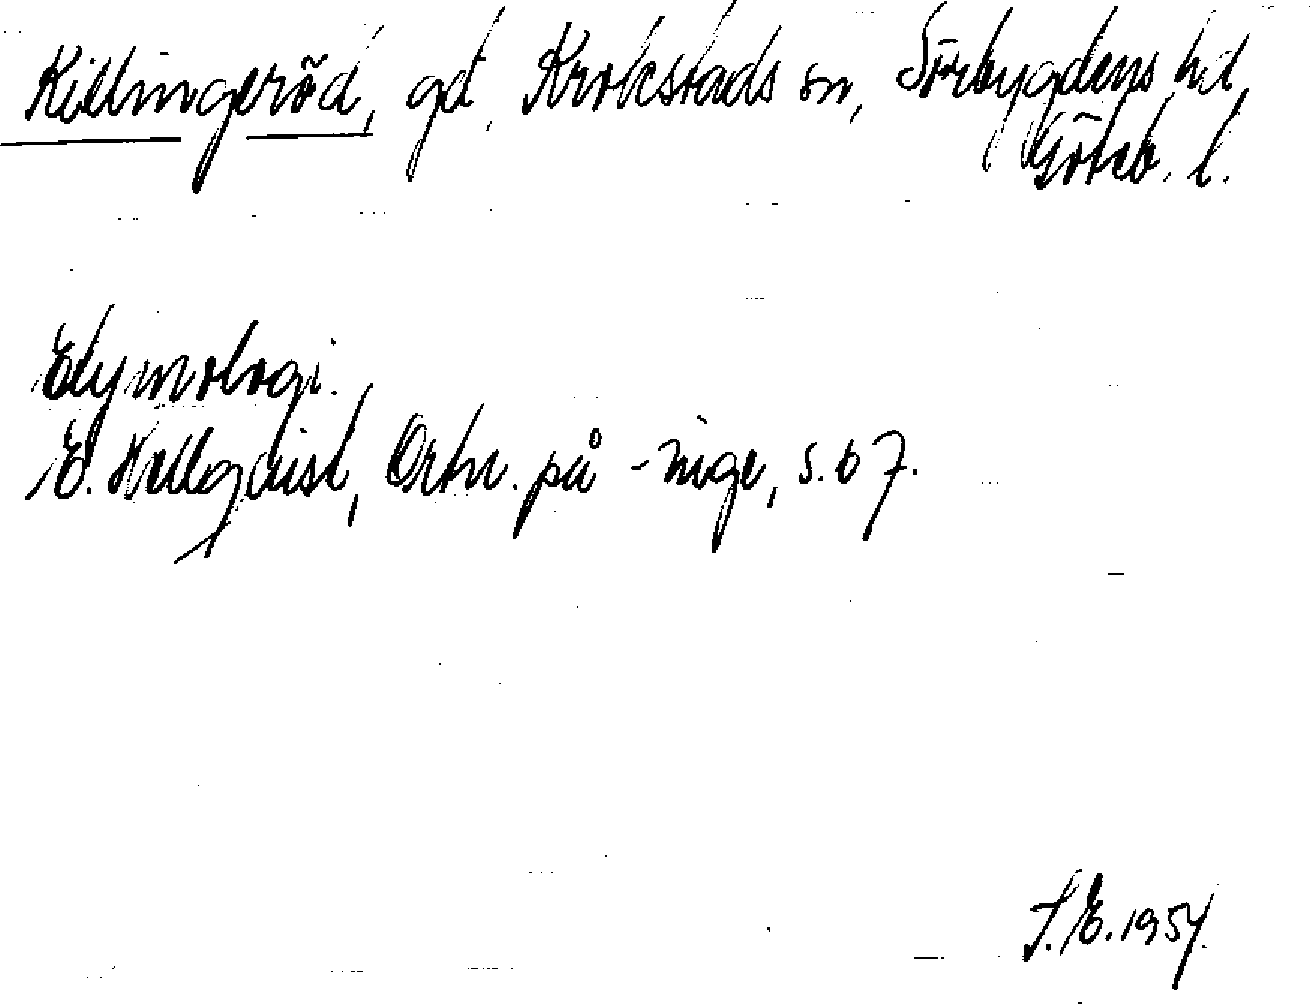 Killingeröd, gd, Krokstads sn, Sörbygdens hd,
Göteb. l.
Etymologi.
E. Hellquist, Ortn. på -inge, s. 67.
S. E. 1954.